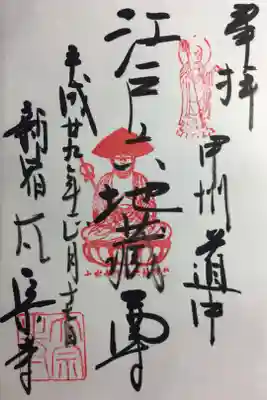 奉拝 甲州道中
江戸六地蔵尊
平成廿九年 月 日
新宿 太宗寺